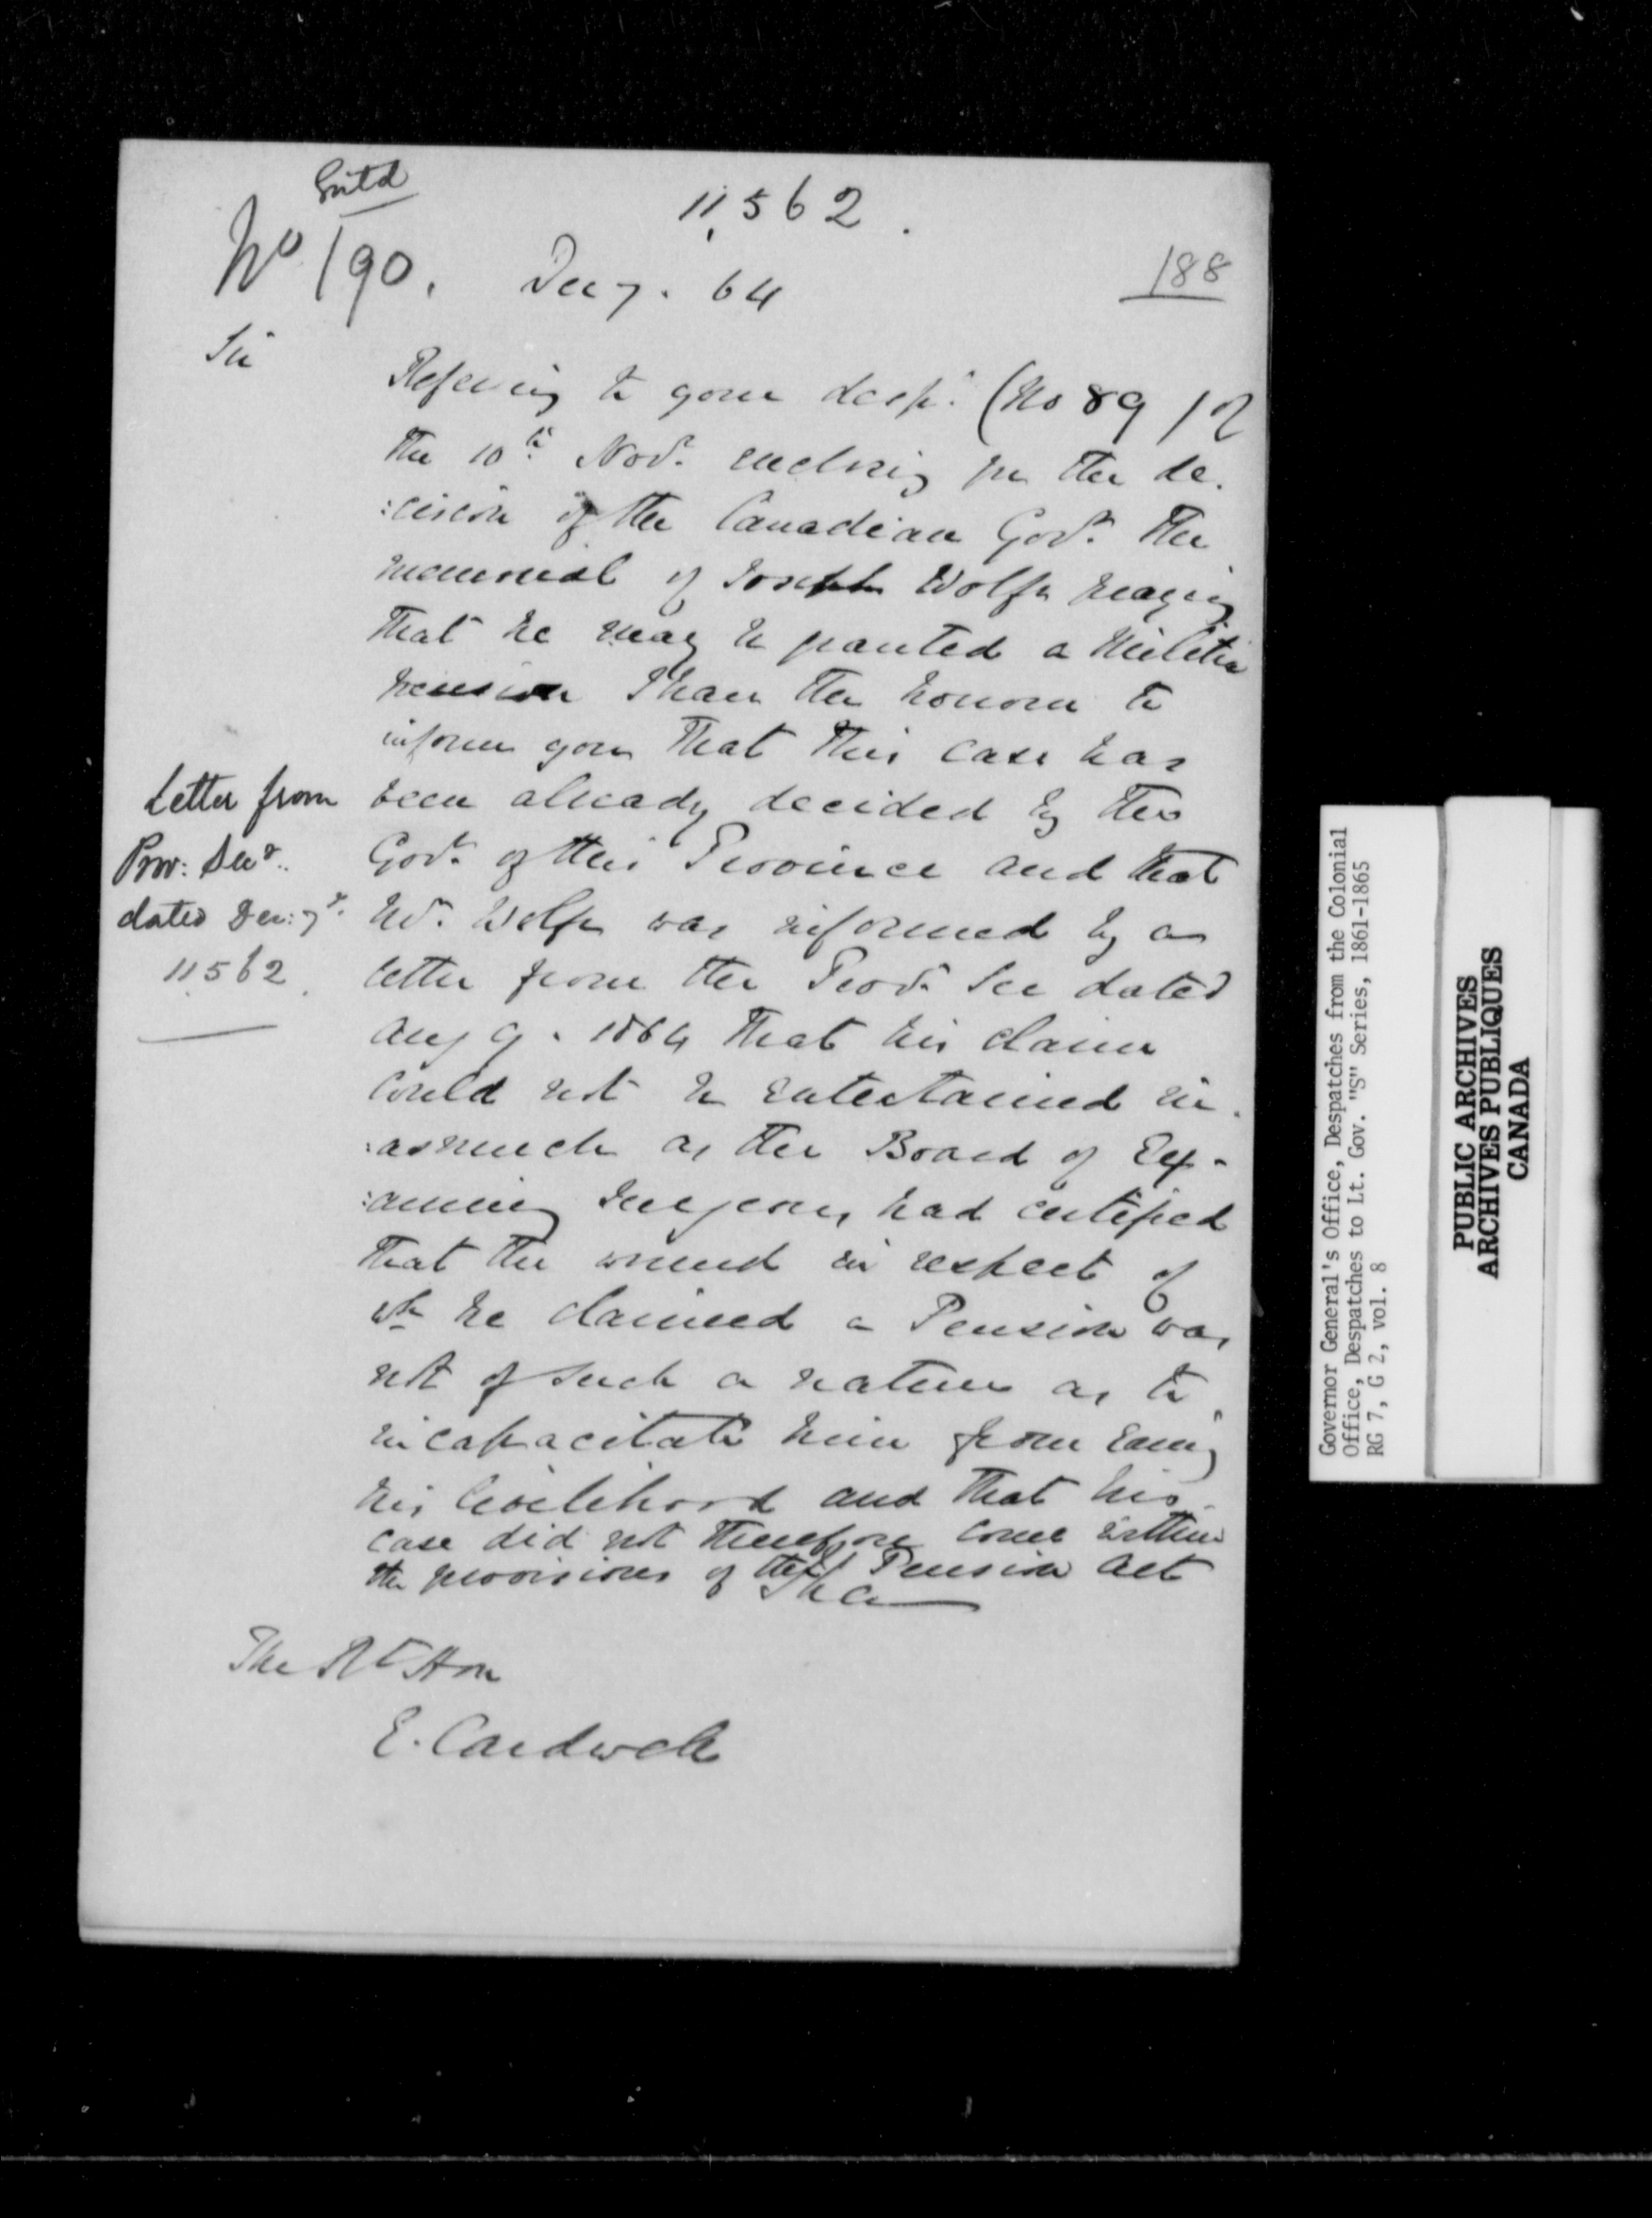 Entd
11,562.
No 190. Dec 7. 64
188
Sir
Referring to your desp. (No 89) of
the 10th Novr. enclosing for the de-
:cision of the Canadian Govt. the
memorial of Joseph Wolfe praying
that he may be granted a Militia
pension I have the honour to
inform you that this case has
been already decided by the
Govt. of this Province and that
Mr. Wolfe was informed by a
letter from the Prov. Sec dated
Aug 9. 1864 that his claim
could not be entertained in-
:asmuch as the Board of Ex-
:amining Surgeons had certified
that the wound in respect of
wh he claimed a Pension was
not of such a nature as to
incapacitate him from earng
his livelihood and that his
case did not therefore come within
the provisions of the Pension Act
I ha
Letter from
Prov: Secy.
dated Dec: 7th.
11562.
The Rt Hon
E. Cardwell
Governor General's Office, Despatches from the Colonial
Office, Despatches to Lt. Gov. "S" Series, 1861-1865
RG 7, G 2, vol. 8
PUBLIC ARCHIVES
ARCHIVES PUBLIQUES
CANADA